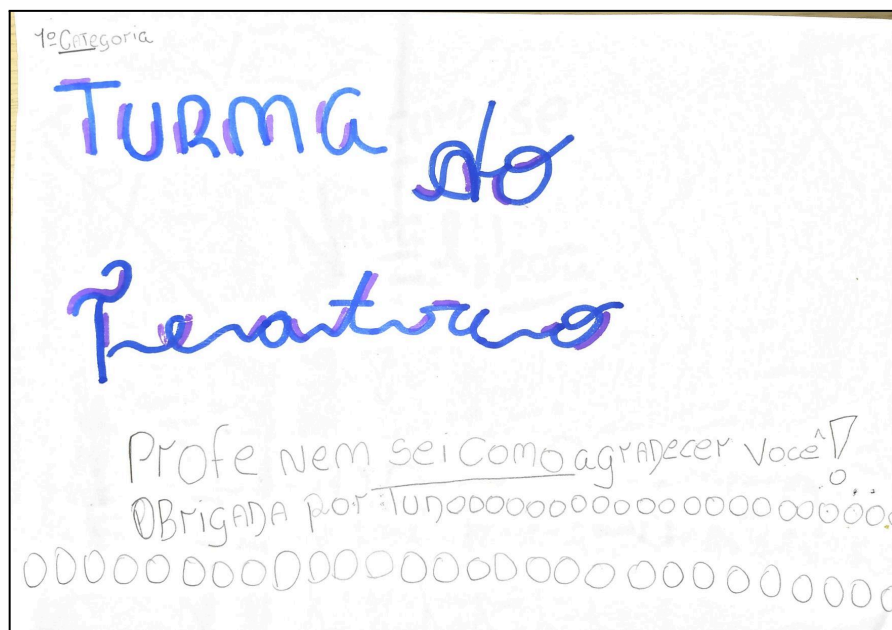 1º Categoria
TURMA do
Profe nem sei como agradecer você!
Obrigada por TUDOOOOOOOOOOOOOOOOOOOOO
OOOOOOOOOOOOOOOOOOOOOOOOOOOO